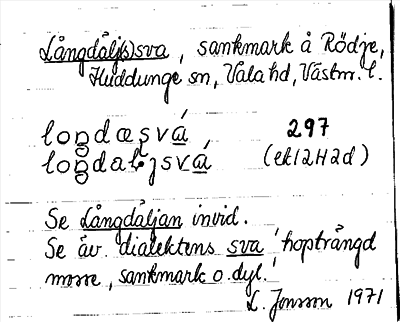 Långdålj(s)sva, sankmark å Rödje,
Huddunge sn, Vala hd, Västm. l.
loŋdæsvá 297
loŋdaljsvá (ek12H2d)
Se Långdåljan invid.
Se äv. dialektens sva 'hopträngd
mosse, sankmark o.dyl.'
L. Jonson 1971